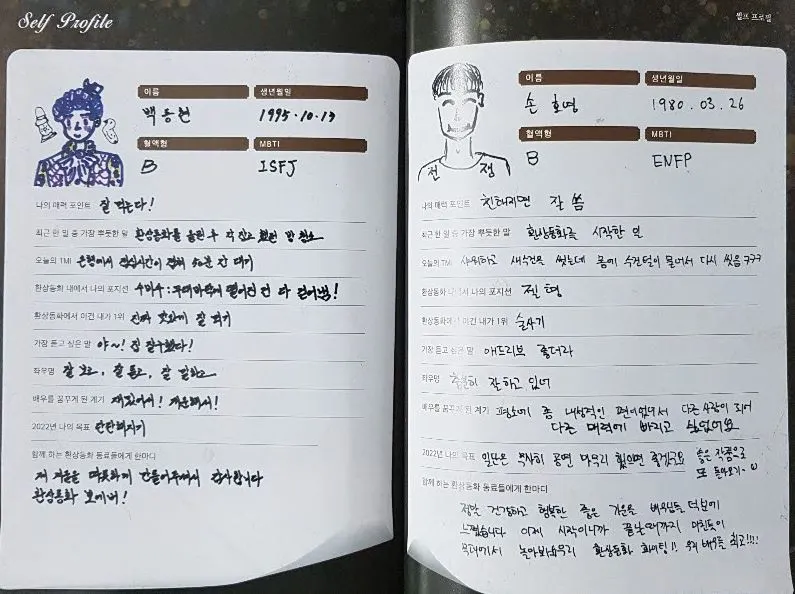 Self Profile
이름
생년월일
백동현
1995.10.17
혈액형
MBTI
B
ISFJ
나의 매력 포인트 잘 먹는다!
최근 한 일 중 가장 뿌듯한 말 환상동화를 올린 후 각 잡고 했던 방 청소
오늘의 TMI 은행에서 점심시간이 겹쳐 50분 간 대기
환상동화 내에서 나의 포지션 무대바닥에 떨어진 건 다 걷어냄!
환상동화에서 이건 내가 1위 진짜 맛있게 잘 먹기
가장 듣고 싶은 말 야~! 참 잘했다!
좌우명 잘 보고, 잘 듣고, 잘 말하고
배우를 꿈꾸게 된 계기 재밌어서! 게운해서!
2022년 나의 목표 단단해지기
함께 하는 환상동화 동료들에게 한마디
제 겨울을 따뜻하게 만들어주셔서 감사합니다
환상동화 포에버!
셀프 프로필
이름
생년월일
손 호영
1980.03.26
혈액형
MBTI
B
ENFP
전 쟁
나의 매력 포인트 친해지면 잘 씀
최근 한 일 중 가장 뿌듯한 말 환상동화를 시작한 일
오늘의 TMI 샤워하고 새수건을 썼는데 몸에 수건털이 묻어서 다시 씻음 ㅋㅋㅋ
환상동화 내에서 나의 포지션 젤 형
환상동화에서 이건 내가 1위 술사기
가장 듣고 싶은 말 애드리브 좋더라
좌우명 충분히 잘하고 있어
배우를 꿈꾸게 된 계기 평소에 좀 내성적인 편이었어서 다른 사람이 되어
다른 매력에 빠지고 싶었어요
2022년 나의 목표 일단은 무사히 공연 마무리 했으면 좋겠구요 좋은 작품으로
또 돌아오기~
함께 하는 환상동화 동료들에게 한마디
정말 건강하고 행복한 좋은 기운을 배우님들 덕분에
느꼈습니다 이제 시작이니까 끝날때까지 미친듯이
무대에서 놀아봐요우리 환상동화 화이팅!! 우리 배우들 최고!!!!